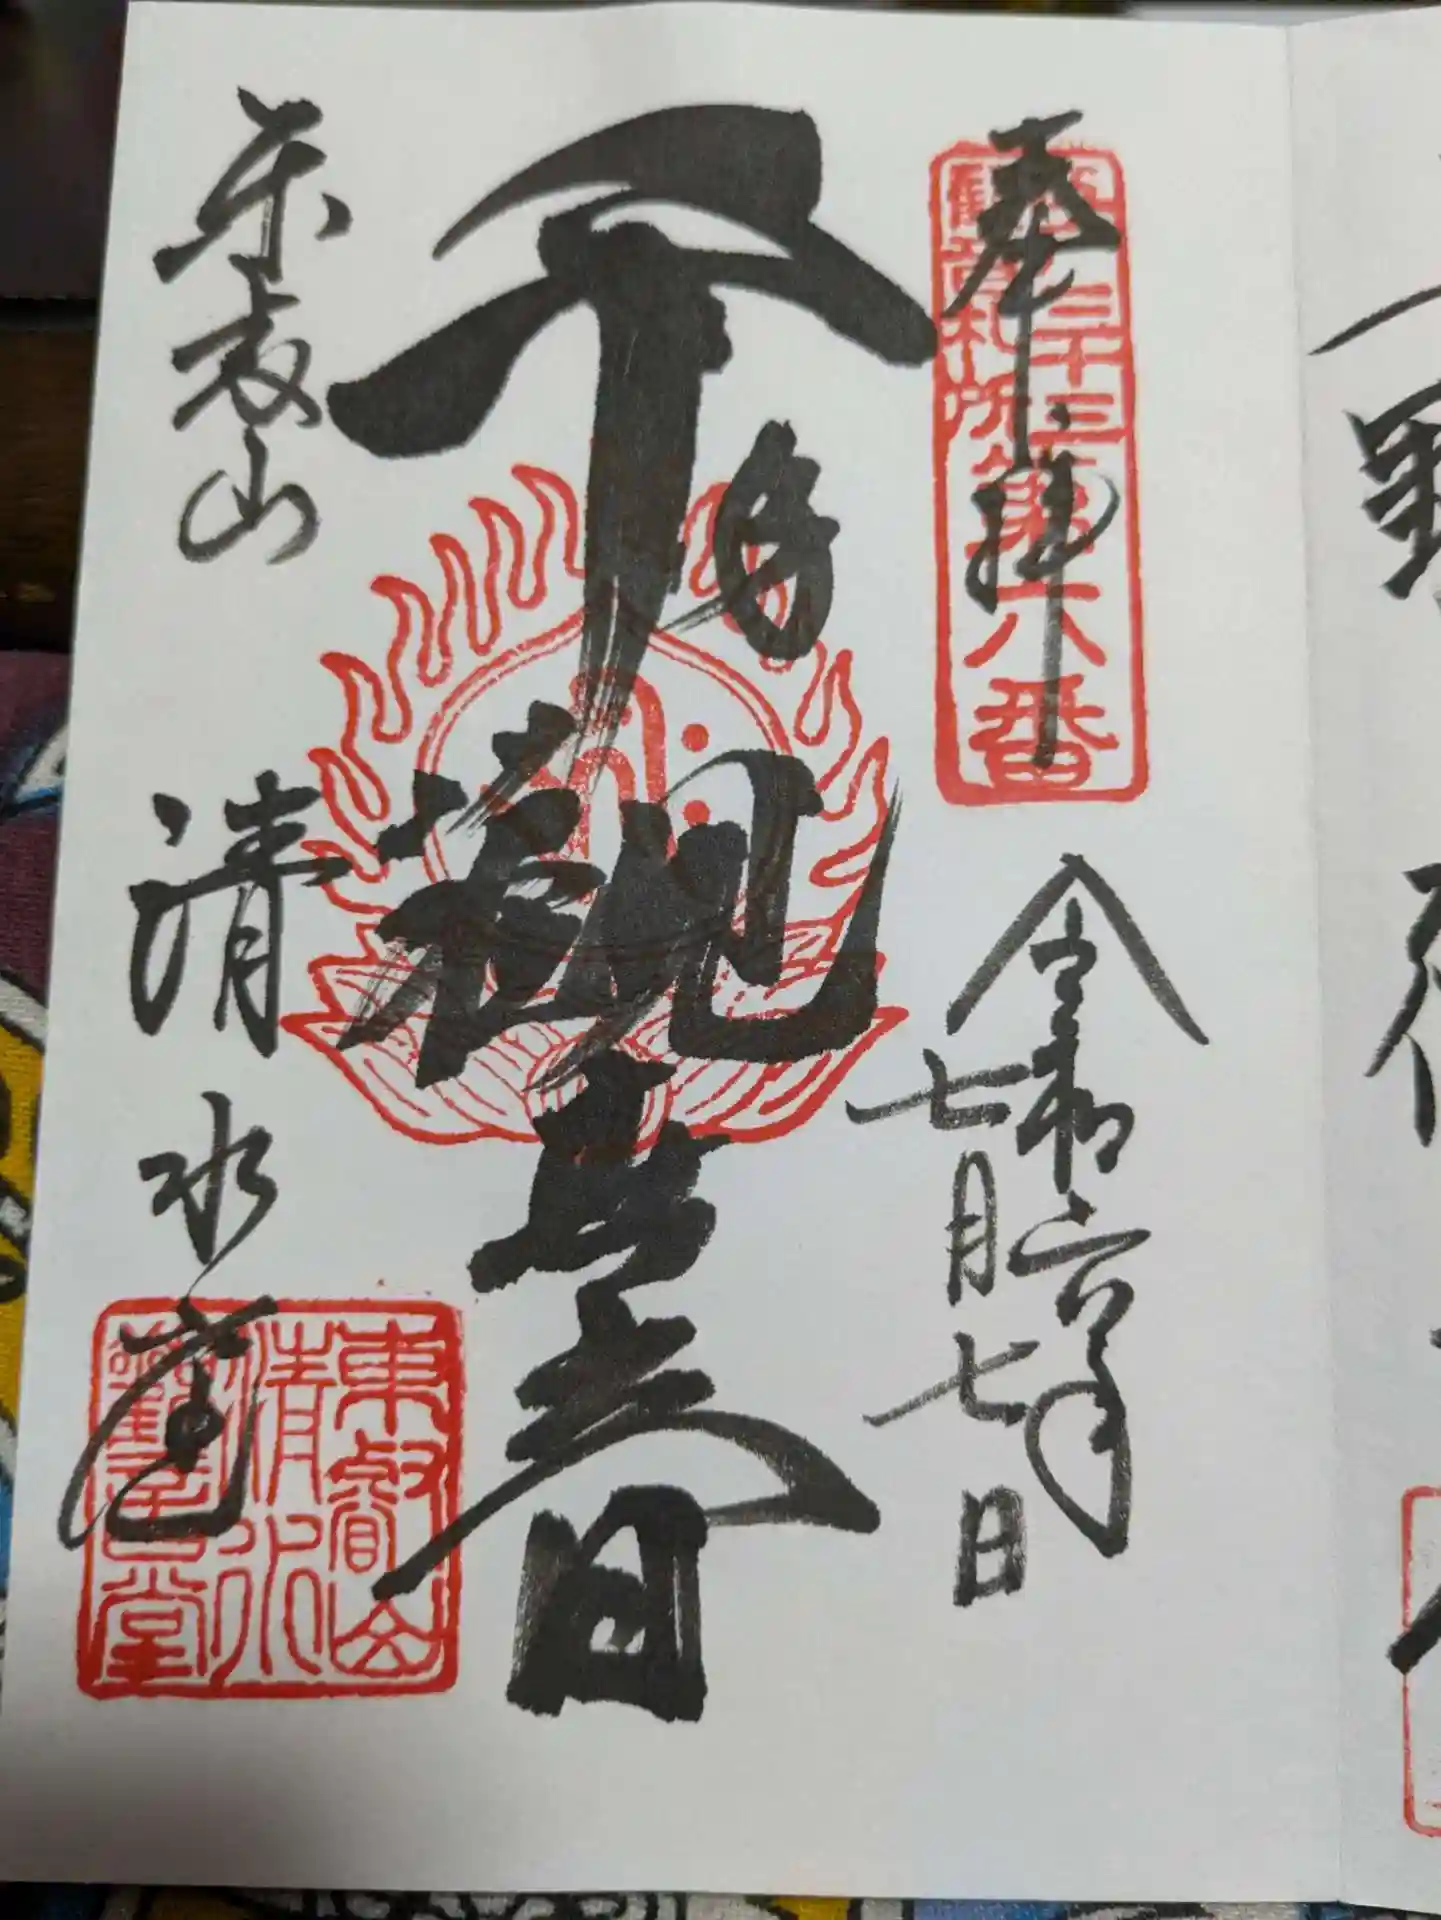 奉拝
江戸三十三
観音札所第六番
令和六年
七月七日
千手観世音
東叡山 清水堂
東叡山
清水
観音堂